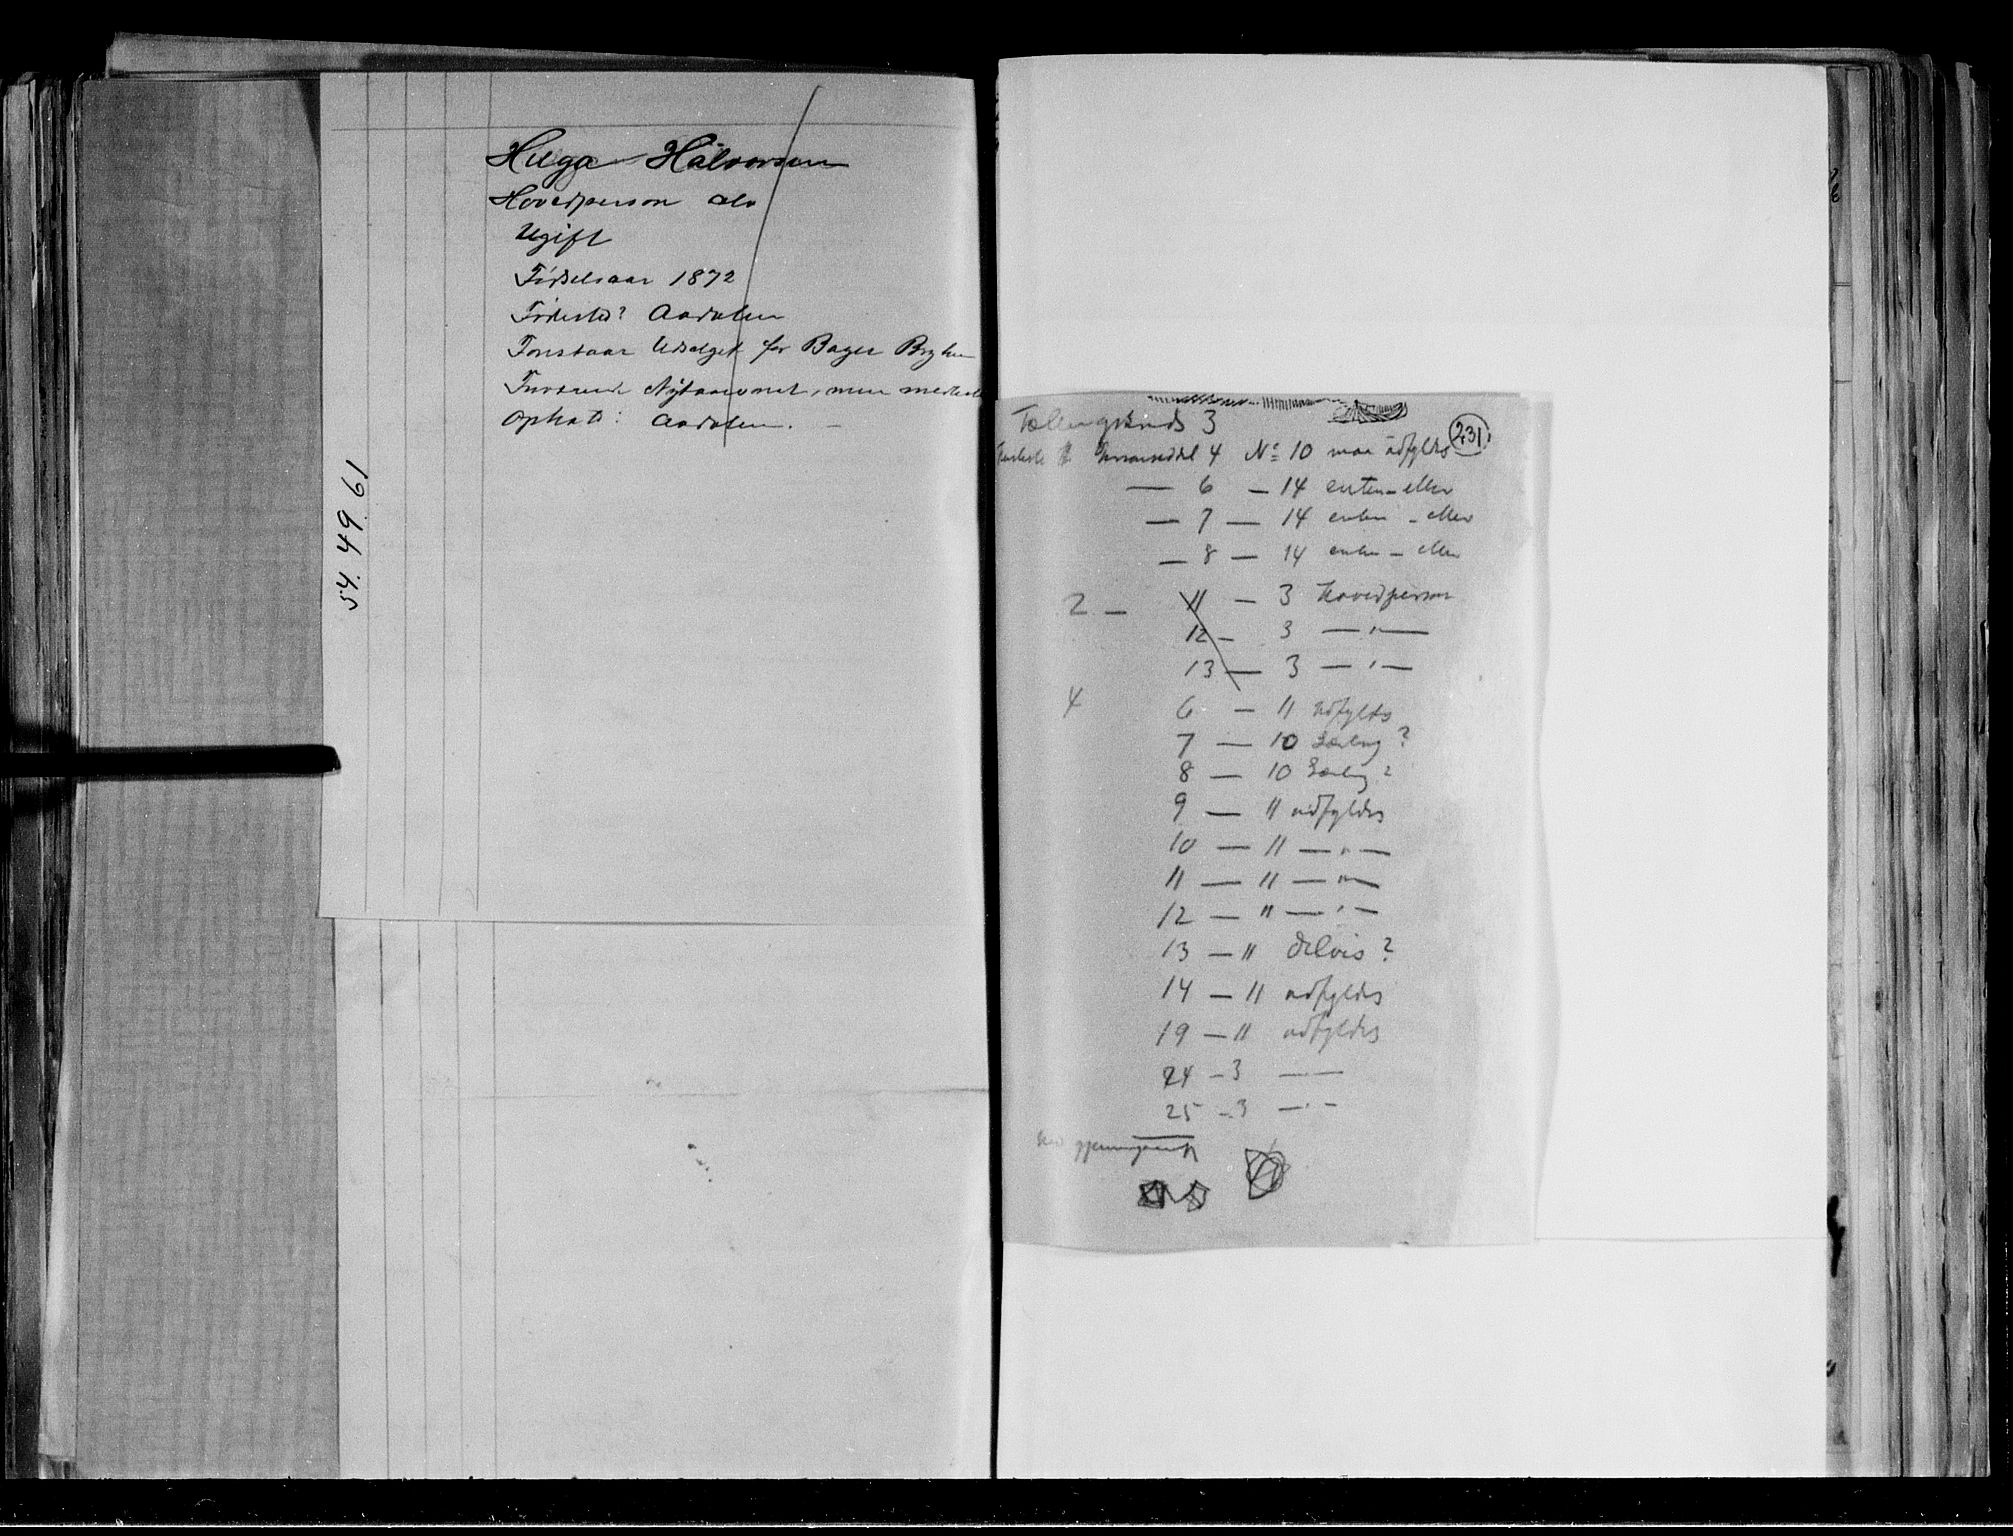 Helga Halvorsen
Hovedperson
Ugift
Fødselsaar 1872
Fødested? Aadalen
Udsalget for Bayer
Nytaarsnat, men
Opholdt: Aadalen. —
54. 49. 61
Tællingskreds 3
231
4 No 10 maa udfyldes
— 6 — 14 enten-eller
— 7 — 14 enten - eller
— 8 — 14 enten - eller
2 — 11 — 3 Hovedperson
12 — 3 — " —
13 — 3 — " —
4 6 — 11 udfyldes
7 — 10 Særlig ?
8 — 10 Særlig ?
9 — 11 udfyldes
10 — 11 — " —
11 — 11 — " —
12 — 11 — " —
13 — 11 delvis ?
14 — 11 udfyldes
19 — 11 udfyldes
24 — 3 — —
25 — 3 — " —